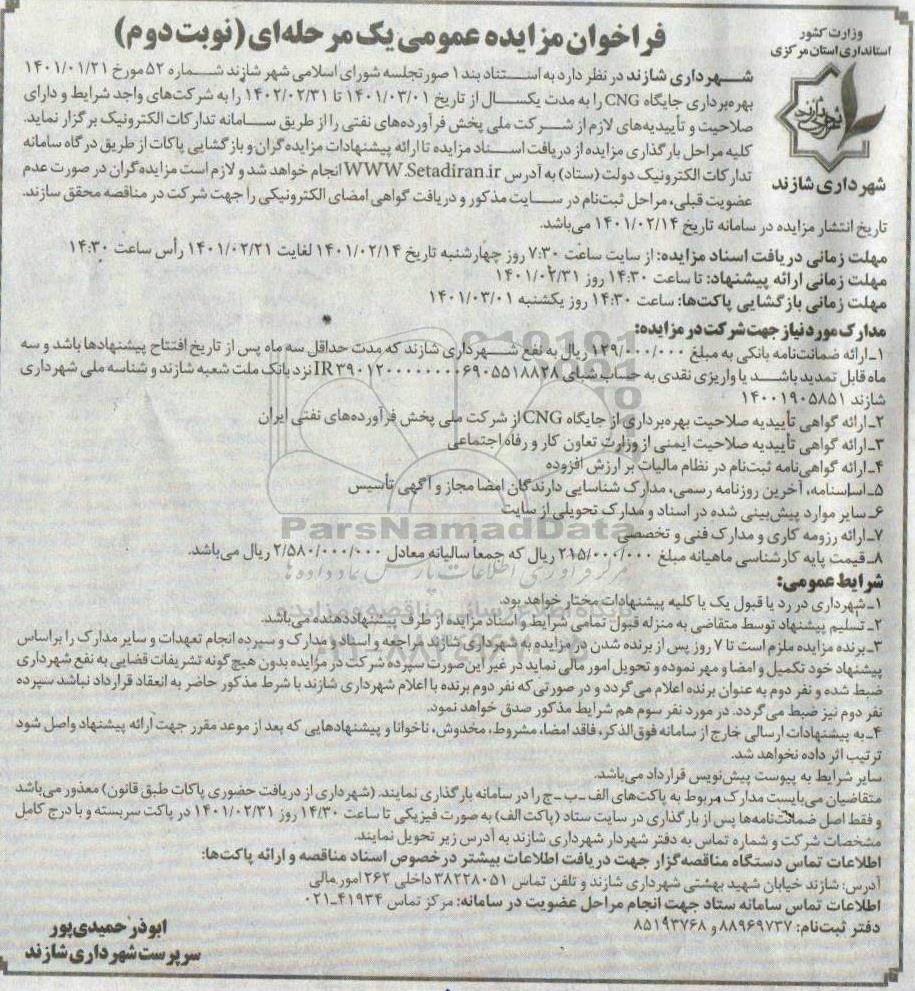 وزارت کشور
استانداری استان مرکزی
شهرداری شازند
فراخوان مزایده عمومی یک مرحله‌ای (نوبت دوم)
شهرداری شازند در نظر دارد به استناد بند ۱ صورتجلسه شورای اسلامی شهر شازند شماره ۵۲ مورخ ۱۴۰۱/۰۱/۲۱
بهره‌برداری جایگاه CNG را به مدت یکسال از تاریخ ۱۴۰۱/۰۳/۰۱ تا ۱۴۰۲/۰۲/۳۱ را به شرکت‌های واجد شرایط و دارای
صلاحیت و تأییدیه‌های لازم از شرکت ملی پخش فرآورده‌های نفتی را از طریق سامانه تدارکات الکترونیک برگزار نماید.
کلیه مراحل بارگذاری مزایده از دریافت اسناد مزایده تا ارائه پیشنهادات مزایده‌گران و بازگشایی پاکات از طریق درگاه سامانه
تدارکات الکترونیک دولت (ستاد) به آدرس WWW.Setadiran.ir انجام خواهد شد و لازم است مزایده‌گران در صورت عدم
عضویت قبلی، مراحل ثبت‌نام در سایت مذکور و دریافت گواهی امضای الکترونیکی را جهت شرکت در مناقصه محقق سازند.
تاریخ انتشار مزایده در سامانه تاریخ ۱۴۰۱/۰۲/۱۴ می‌باشد.
مهلت زمانی دریافت اسناد مزایده: از سایت ساعت ۷:۳۰ روز چهارشنبه تاریخ ۱۴۰۱/۰۲/۱۴ لغایت ۱۴۰۱/۰۲/۲۱ رأس ساعت ۱۴:۳۰
مهلت زمانی ارائه پیشنهاد: تا ساعت ۱۴:۳۰ روز ۱۴۰۱/۰۲/۳۱
مهلت زمانی بازگشایی پاکت‌ها: ساعت ۱۴:۳۰ روز یکشنبه ۱۴۰۱/۰۳/۰۱
مدارک مورد نیاز جهت شرکت در مزایده:
۱ـ ارائه ضمانت‌نامه بانکی به مبلغ ۱۲۹/۰۰۰/۰۰۰ ریال به نفع شهرداری شازند که مدت حداقل سه ماه پس از تاریخ افتتاح پیشنهادها باشد و سه
ماه قابل تمدید باشد یا واریزی نقدی به حساب شبای IR۳۹۰۱۲۰۰۰۰۰۰۰۰۰۶۹۰۵۵۱۸۸۲۸ نزد بانک ملت شعبه شازند و شناسه ملی شهرداری
شازند ۱۴۰۰۱۹۰۵۸۵۱
۲ـ ارائه گواهی تأییدیه صلاحیت بهره‌برداری از جایگاه CNG از شرکت ملی پخش فرآورده‌های نفتی ایران
۳ـ ارائه گواهی تأییدیه صلاحیت ایمنی از وزارت تعاون کار و رفاه اجتماعی
۴ـ ارائه گواهی‌نامه ثبت‌نام در نظام مالیات بر ارزش افزوده
۵ـ اساسنامه، آخرین روزنامه رسمی، مدارک شناسایی دارندگان امضا مجاز و آگهی تأسیس
۶ـ سایر موارد پیش‌بینی شده در اسناد و مدارک تحویلی از سایت
۷ـ ارائه رزومه کاری و مدارک فنی و تخصصی
۸ـ قیمت پایه کارشناسی ماهیانه مبلغ ۲۱۵/۰۰۰/۰۰۰ ریال که جمعاً سالیانه معادل ۲/۵۸۰/۰۰۰/۰۰۰ ریال می‌باشد.
ParsNamadData
شرایط عمومی:
۱ـ شهرداری در رد یا قبول یک یا کلیه پیشنهادات مختار خواهد بود.
۲ـ تسلیم پیشنهاد توسط متقاضی به منزله قبول تمامی شرایط و اسناد مزایده از طرف پیشنهاددهنده می‌باشد.
۳ـ برنده مزایده ملزم است تا ۷ روز پس از برنده شدن در مزایده به شهرداری شازند مراجعه و اسناد و مدارک و سپرده انجام تعهدات و سایر مدارک را براساس
پیشنهاد خود تکمیل و امضا و مهر نموده و تحویل امور مالی نماید در غیر این‌صورت سپرده شرکت در مزایده بدون هیچ‌گونه تشریفات قضایی به نفع شهرداری
ضبط شده و نفر دوم به عنوان برنده اعلام می‌گردد و در صورتی‌که نفر دوم برنده با اعلام شهرداری شازند با شرط مذکور حاضر به انعقاد قرارداد نباشد سپرده
نفر دوم نیز ضبط می‌گردد. در مورد نفر سوم هم شرایط مذکور صدق خواهد نمود.
۴ـ به پیشنهادات ارسالی خارج از سامانه فوق‌الذکر، فاقد امضا، مشروط، مخدوش، ناخوانا و پیشنهادهایی که بعد از موعد مقرر جهت ارائه پیشنهاد واصل شود
ترتیب اثر داده نخواهد شد.
سایر شرایط به پیوست پیش‌نویس قرارداد می‌باشد.
متقاضیان می‌بایست مدارک مربوط به پاکت‌های الف ـ ب ـ ج را در سامانه بارگذاری نمایند. (شهرداری از دریافت حضوری پاکات طبق قانون) معذور می‌باشد
و فقط اصل ضمانت‌نامه‌ها پس از بارگذاری در سایت ستاد (پاکت الف) به صورت فیزیکی تا ساعت ۱۴/۳۰ روز ۱۴۰۱/۰۲/۳۱ در پاکت سربسته و با درج کامل
مشخصات شرکت و شماره تماس به دفتر شهردار شهرداری شازند به آدرس زیر تحویل نمایند.
اطلاعات تماس دستگاه مناقصه‌گزار جهت دریافت اطلاعات بیشتر در خصوص اسناد مناقصه و ارائه پاکت‌ها:
آدرس: شازند خیابان شهید بهشتی شهرداری شازند و تلفن تماس ۳۸۲۲۸۰۵۱ داخلی ۲۶۲ امور مالی
اطلاعات تماس سامانه ستاد جهت انجام مراحل عضویت در سامانه: مرکز تماس ۴۱۹۳۴-۰۲۱
دفتر ثبت‌نام: ۸۸۹۶۹۷۳۷ و ۸۵۱۹۳۷۶۸
ابوذر حمیدی‌پور
سرپرست شهرداری شازند